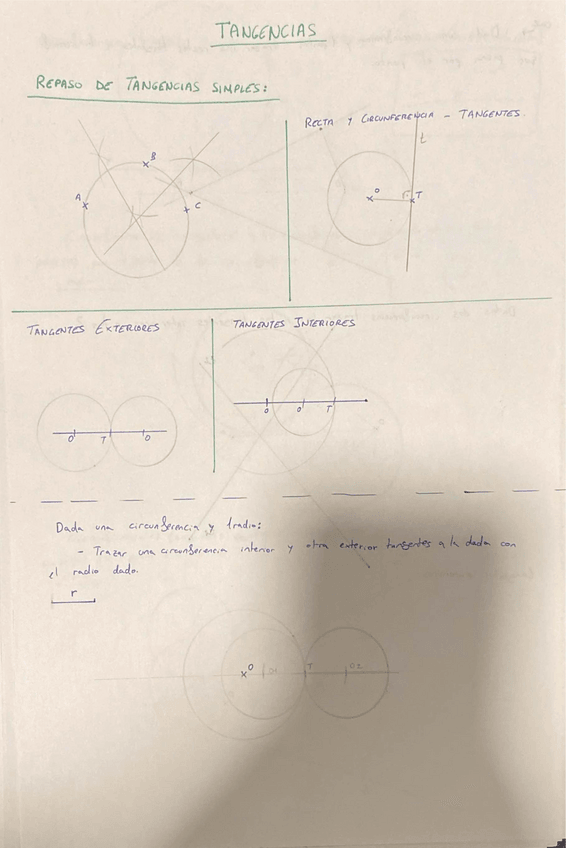 TANGENCIAS
REPASO DE TANGENCIAS SIMPLES:
RECTA Y CIRCUNFERENCIA - TANGENTES
t
B
A
C
O
T
TANGENTES EXTERIORES
TANGENTES INTERIORES
O
T
O
O
O
T
Dada una circunferencia y 1 radio:
- Trazar una circunferencia interior y otra exterior tangentes a la dada con
el radio dado.
r
O
O1
T
O2